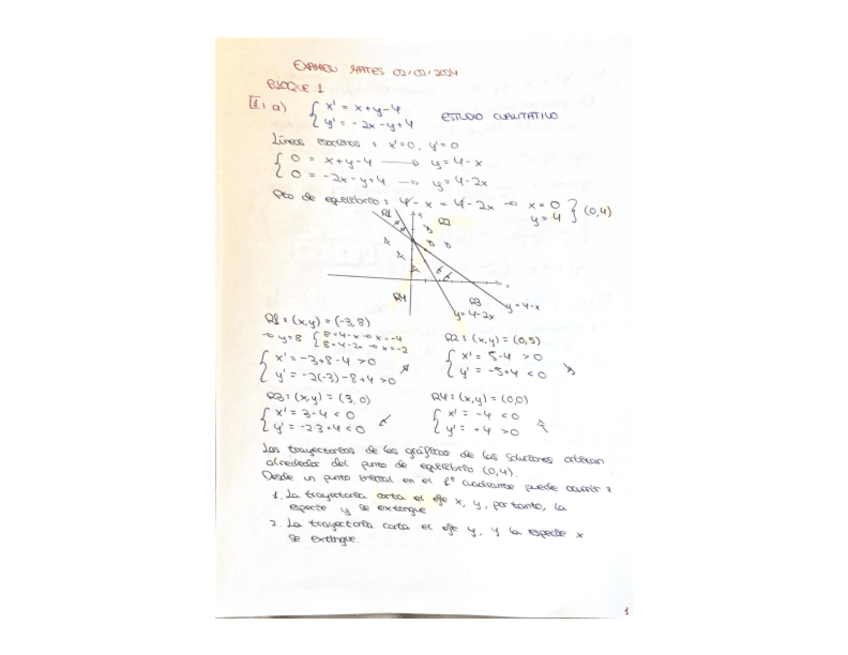 EXAMEN MATES 02/02/2024
BLOQUE 1
1. a) { x' = x+y-4
y' = -2x-y+4
ESTUDIO CUALITATIVO
x'=0, y'=0
{ 0 = x+y-4 → y=4-x
0 = -2x-y+4 → y=4-2x
Pto de equilibrio: 4-x = 4-2x → x=0
y=4 } (0,4)
R1
R2
R4
R3
y=4-x
y=4-2x
R1: (x,y) = (-3,8)
→ y=8 { 8=4-x → x=-4
8=4-2x → x=-2
{ x' = -3+8-4 >0
y' = -2(-3)-8+4 >0
R2: (x,y) = (0,5)
{ x' = 5-4 >0
y' = -5+4 <0
R3: (x,y) = (3,0)
{ x' = 3-4 <0
y' = -2·3+4 <0
R4: (x,y) = (0,0)
{ x' = -4 <0
y' = +4 >0
Las trayectorias de las gráficas de las soluciones orbitan
alrededor del punto de equilibrio (0,4).
Desde un punto inicial en el 1º cuadrante puede ocurrir:
1. La trayectoria corta el eje x, y, por tanto, la
especie y se extingue
2. La trayectoria corta el eje y, y la especie x
se extingue.
1